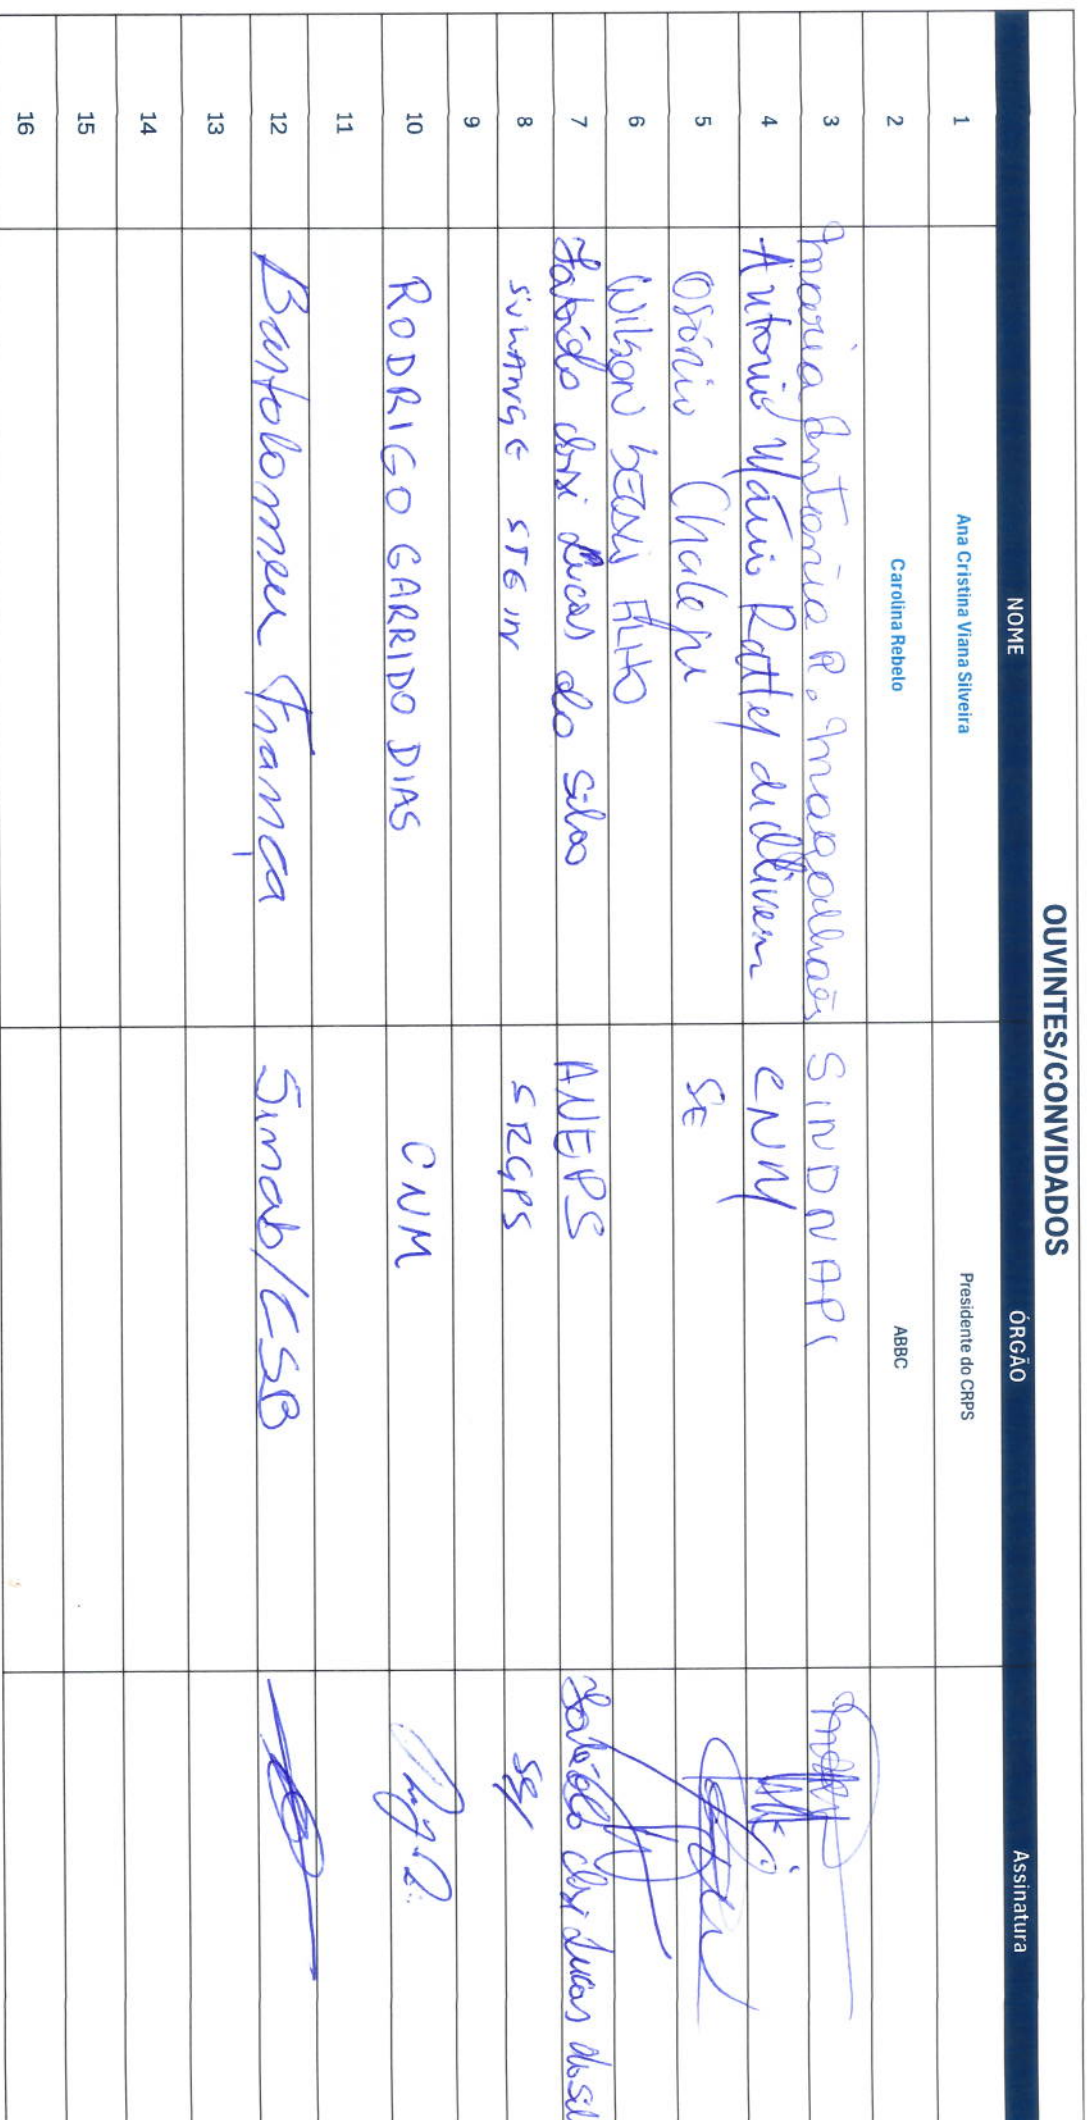 OUVINTES/CONVIDADOS
NOME ÓRGÃO Assinatura
1 Ana Cristina Viana Silveira Presidente do CRPS
2 Carolina Rebelo ABBC
3 Maria Antonia R. Magalhães SINDNAPI
4 Antonio Mário Rattes de Oliveira CNM
5 Osório Chalegre SE
6 WILSON FILHO
7 Lucas da Silva ANEPS
8 SOLANGE STEIN SRGPS
9
10 RODRIGO GARRIDO DIAS CNM
11
12 Bartolomeu França Sinab/CSB
13
14
15
16